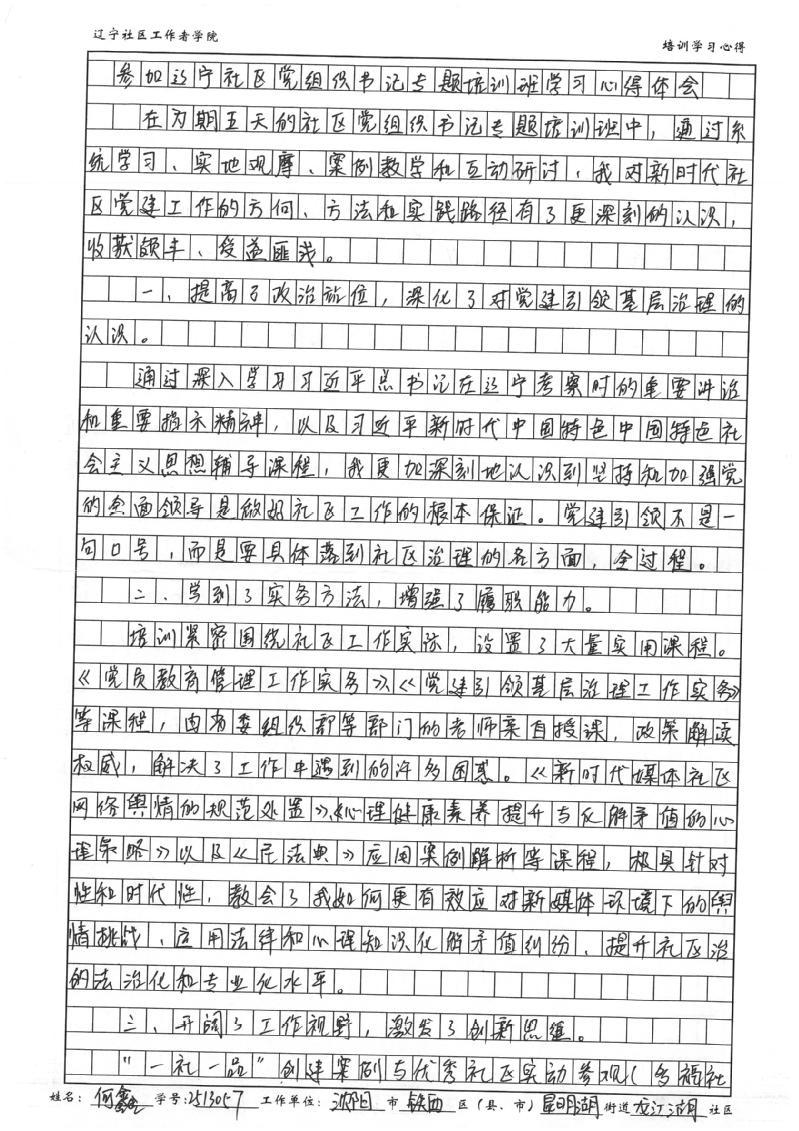 辽宁社区工作者学院
培训学习心得
参加辽宁社区党组织书记专题培训班学习心得体会
在为期五天的社区党组织书记专题培训班中，通过系
统学习、实地观摩、案例教学和互动研讨，我对新时代社
区党建工作的方向、方法和实践路径有了更深刻的认识，
收获颇丰、受益匪浅。
一、提高了政治站位，深化了对党建引领基层治理的
认识。
通过深入学习习近平总书记在辽宁考察时的重要讲话
和重要指示精神，以及习近平新时代中国特色中国特色社
会主义思想辅导课程，我更加深刻地认识到坚持和加强党
的全面领导是做好社区工作的根本保证。党建引领不是一
句口号，而是要具体落到社区治理的各方面，全过程。
二、学到了实务方法，增强了履职能力。
培训紧密围绕社区工作实际，设置了大量实用课程。
《党员教育管理工作实务》《党建引领基层治理工作实务》
等课程，由省委组织部等部门的老师亲自授课，政策解读
权威，解决了工作中遇到的许多困惑。《新时代媒体社区
网络舆情的规范处置》《心理健康素养提升与化解矛盾的心
理策略》以及《民法典》应用案例解析等课程，极具针对
性和时代性，教会了我如何更有效应对新媒体环境下的舆
情挑战、应用法律和心理知识化解矛盾纠纷、提升社区治
的法治化和专业化水平。
三、开阔了工作视野，激发了创新思维。
"一社一品"创建案例与优秀社区实动参观（多福社
姓名：何鑫 学号：2513057 工作单位：沈阳市铁西区（县、市）昆明湖街道龙江湖社区